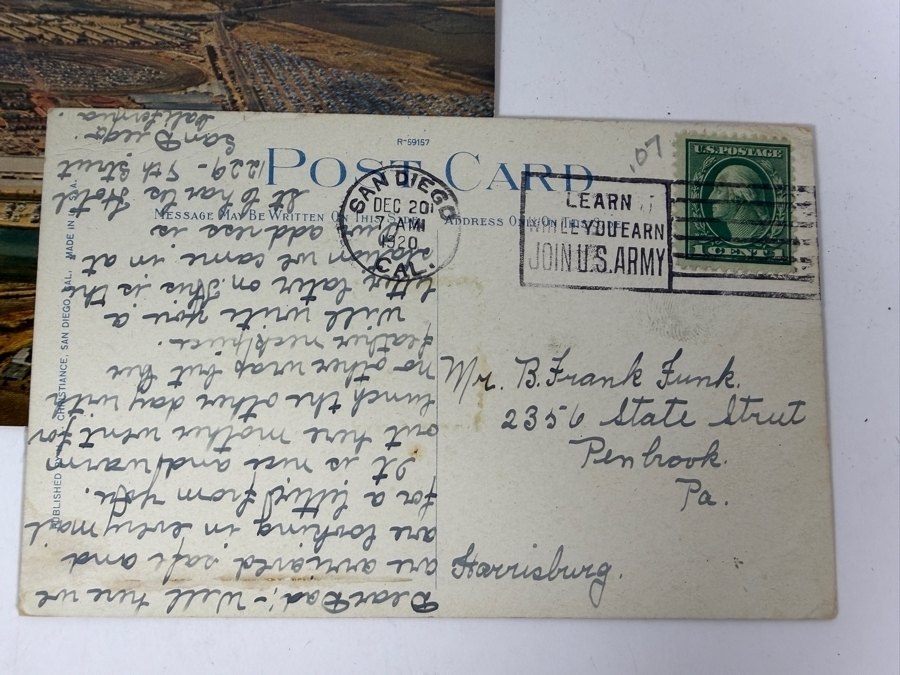 R-59157
POST CARD
MESSAGE MAY BE WRITTEN ON THIS SIDE
ADDRESS ONLY ON THIS SIDE
SAN DIEGO
DEC 20
7 AM
1920
CAL.
LEARN
WHILE YOU EARN
JOIN U.S. ARMY
.07
U.S. POSTAGE
1 CENT 1
Mr. B. Frank Funk.
2356 State Street
Penbrook.
Pa.
Harrisburg.
Dear Dad;- Well here we
are arrived safe and
are looking in every mail
for a letter from you.
It is nice and warm
out here mother went for
lunch the other day with
no other wrap but her
feather neckpiece.
will write you a
letter later on. This is the
station we came in at
address is
St Charles Hotel
1229 - 5th Street
San Diego
California.
PUBLISHED CHRISTIANCE, SAN DIEGO, CAL. MADE IN U.S.A.